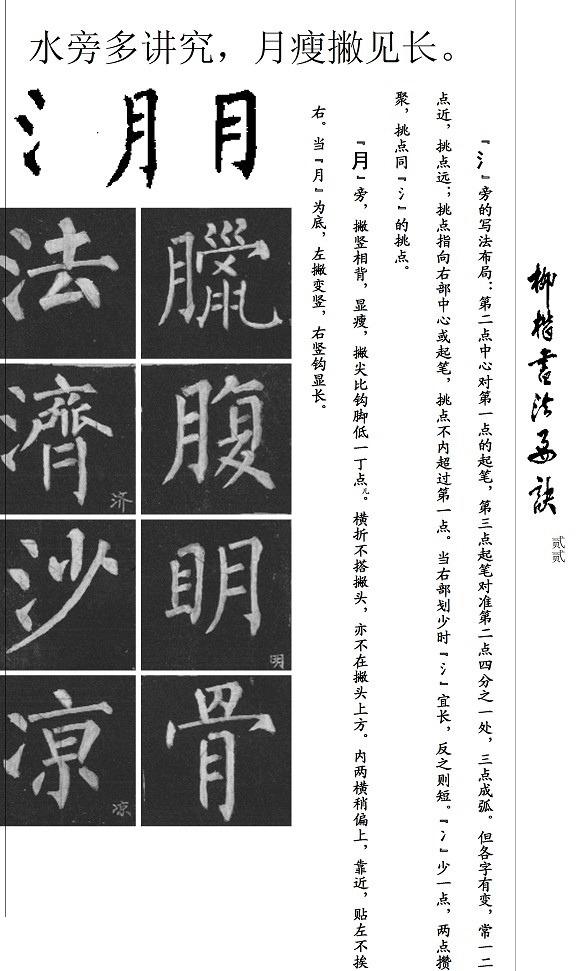 水旁多讲究，月瘦撇见长。
柳楷书法要诀
贰贰
『氵』旁的写法布局：第二点中心对第一点的起笔，第三点起笔对准第二点四分之一处，三点成弧。但各字有变，常一二
点近，挑点远；挑点指向右部中心或起笔，挑点不内超过第一点。当右部划少时『氵』宜长，反之则短。『冫』少一点，两点攒
聚，挑点同『氵』的挑点。
『月』旁，撇竖相背，显瘦，撇尖比钩脚低一丁点儿。横折不搭撇头，亦不在撇头上方。内两横稍偏上，靠近，贴左不挨
右。当『月』为底，左撇变竖，右竖钩显长。
氵月月
法臘
濟腹
济
沙明
明
凉骨
凉